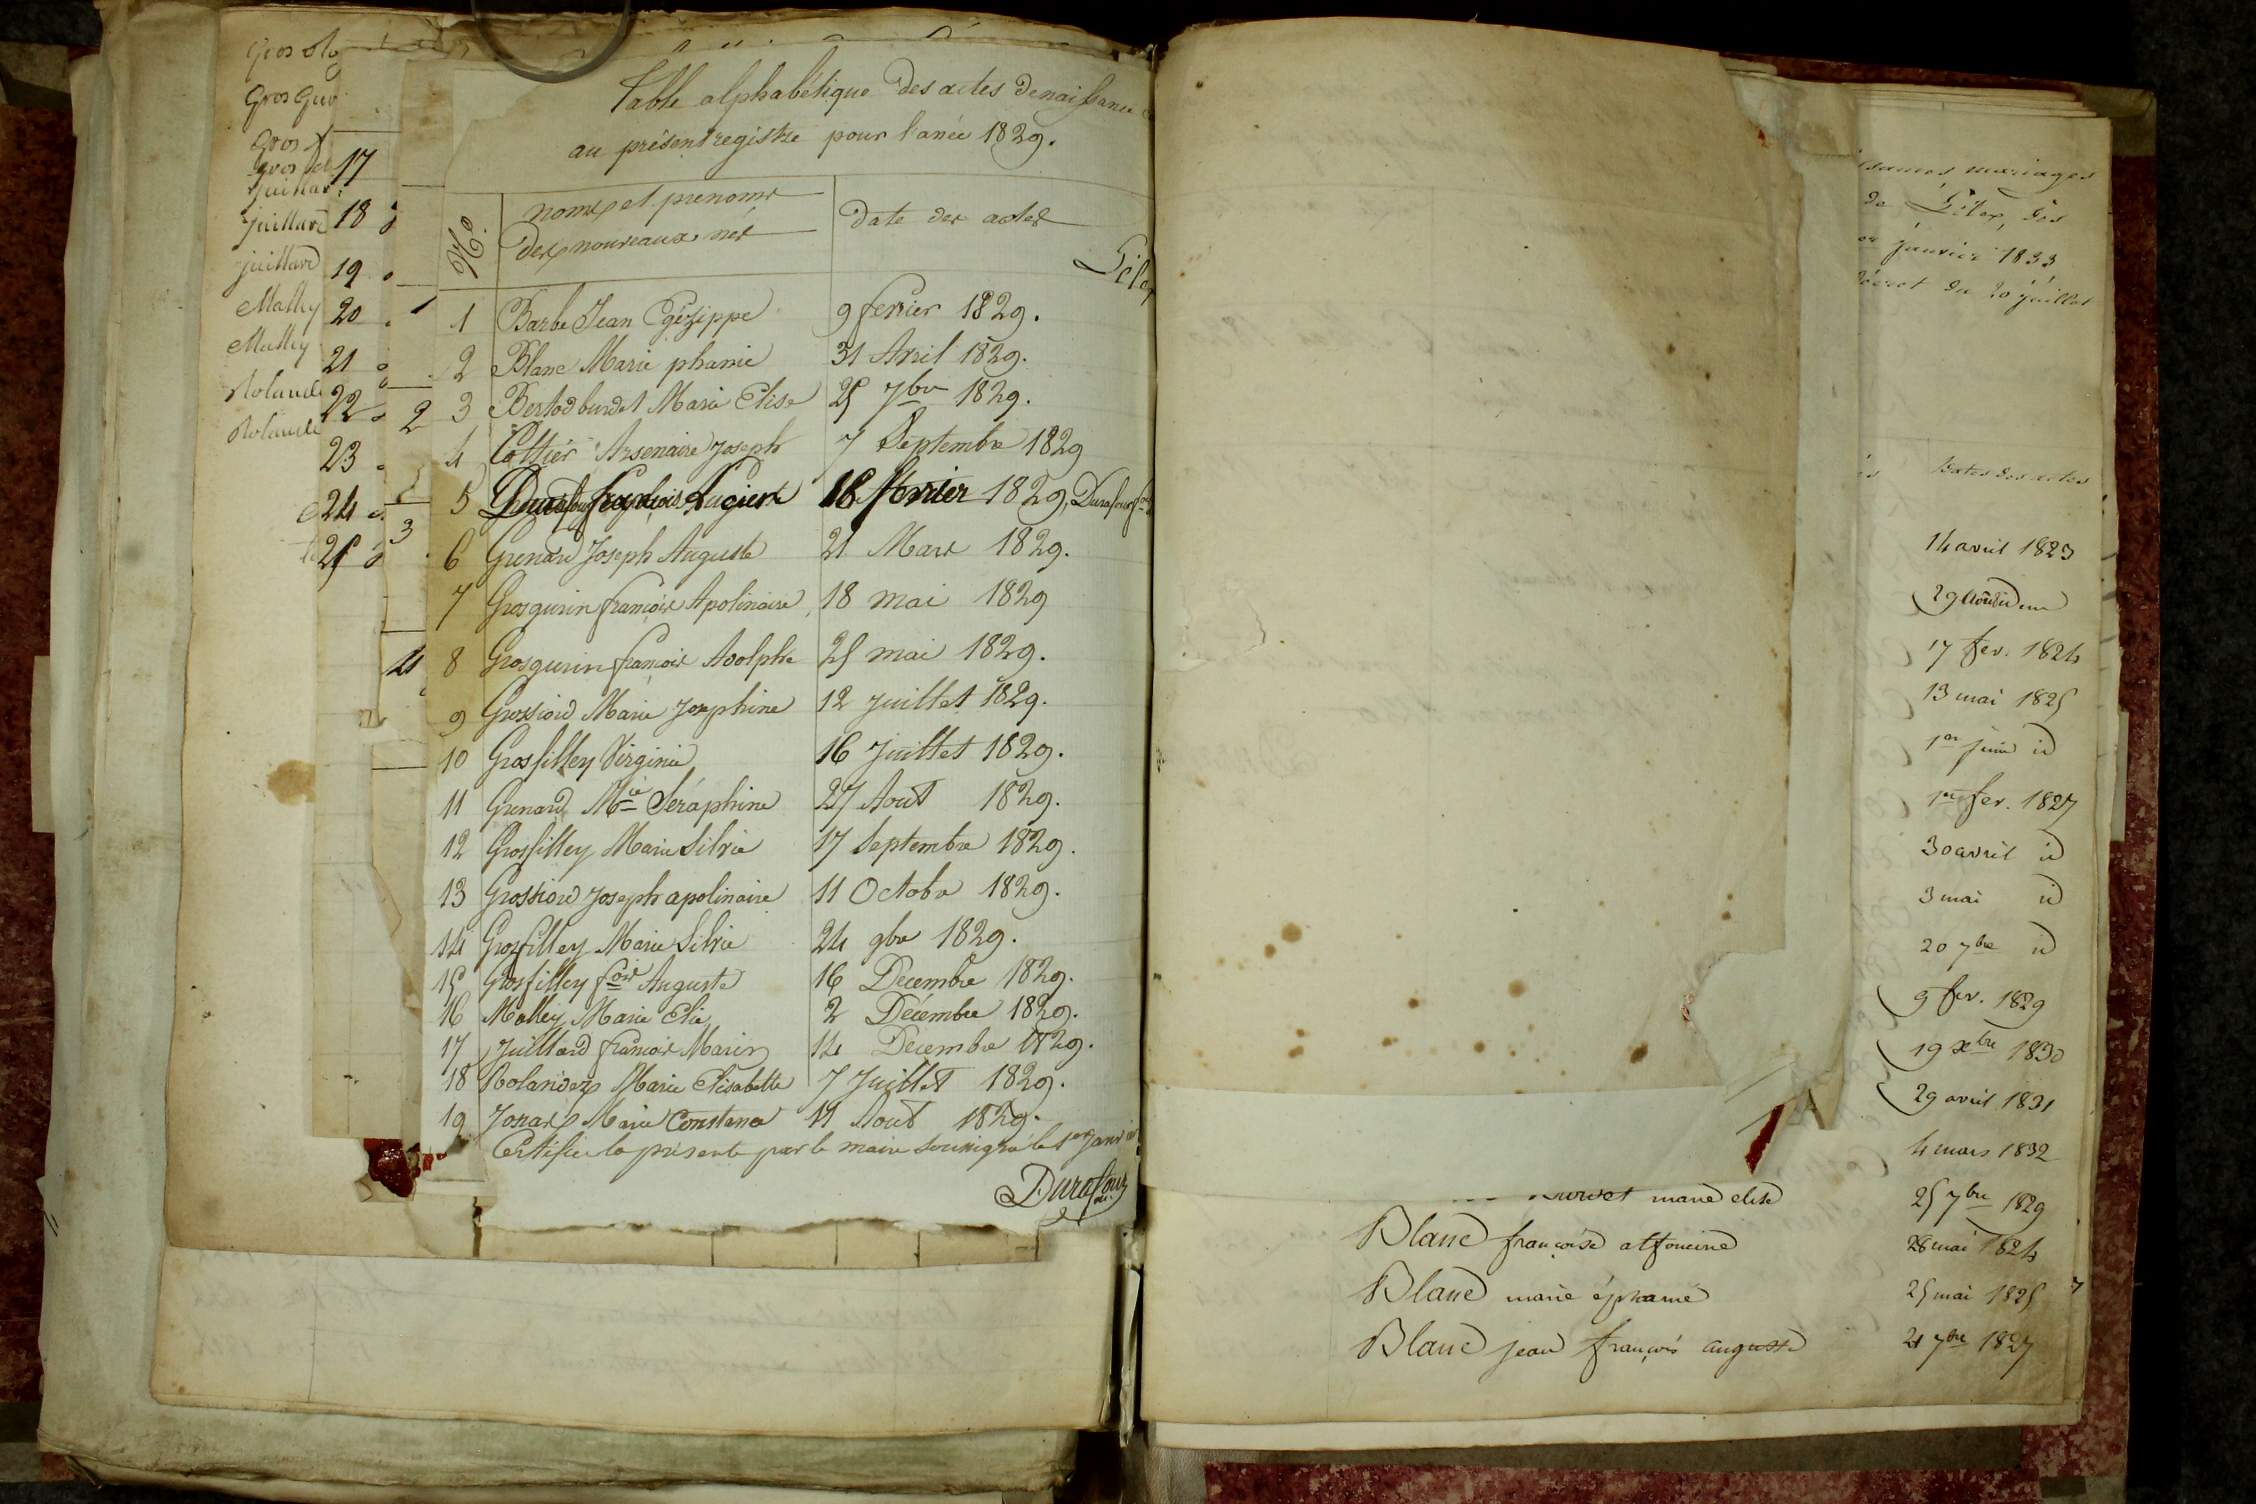 Gros
Gros Gur
Gros
Juillard
Juillard
Mathey
Mathey
Roland
Roland
17
18
19
20
21
22
23
24
25
2
3
4
Table alphabétique des actes denaissance
au présent registre pour l'anée 1829.
No. noms et prenoms des nouveaux nés date des actes
1 Barbe Jean Egézippe 9 fevrier 1829.
2 Blanc Marie phanie 31 Avril 1829.
3 Bertod burdet Marie Elise 25 7bre 1829.
4 Cottier Arsenaire Joseph 7 Septembre 1829
5 Durafour françois 18 fevrier 1829, Durafour
6 Grenard Joseph Auguste 21 Mars 1829.
7 Grosgurin françois Apolinaire 18 mai 1829
8 Grosgurin françois Adolphe 25 mai 1829.
9 Grossiord Marie Josephine 12 Juillet 1829.
10 Grosfilley Virginie 16 Juillet 1829.
11 Grenard Mie Séraphine 27 Aout 1829.
12 Grosfilley Marie Silvie 17 Septembre 1829.
13 Grossiord Joseph apolinaire 11 Octobre 1829.
14 Grosfilley Marie Silvie 24 9bre 1829.
15 Grosfilley fçois Auguste 16 Decembre 1829.
16 Malley Marie Elie 2 Décembre 1829.
17 Juillard françois Marin 14 Decembre 1829.
18 Rolandez Marie Elisabette 7 Juillet 1829.
19 Jonax Marie Constance 11 Aout 1829.
Certifié la présente par le maire soussigné le 1er Janvier
Durafour
mariages
de Lélex, dès
janvier 1833
décret du 20 juillet
Dates des actes
14 avril 1823
29
17 fev. 1824
13 mai 1825
1er juin id
1er fev. 1827
30 avril id
3 mai id
20 7bre id
9 fev. 1829
19 xbre 1830
29 avril 1831
4 mars 1832
Burdet marie elise 25 7bre 1829
Blanc françoise alfoncine 28 mai 1824
Blanc marie éphanie 25 mai 1825
Blanc jean françois auguste 21 7bre 1827